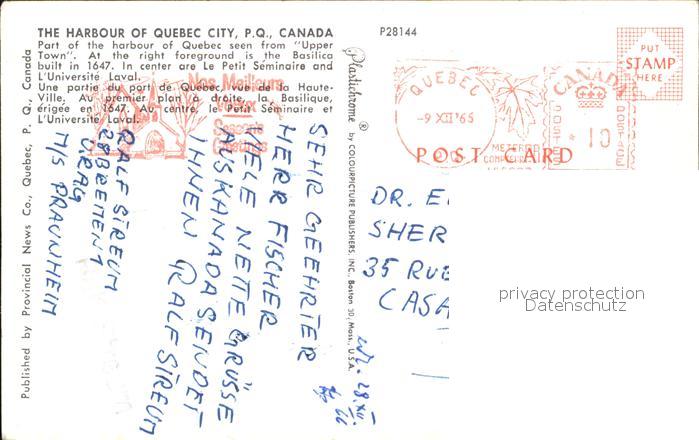 THE HARBOUR OF QUEBEC CITY, P.Q., CANADA
Part of the harbour of Quebec seen from "Upper
Town". At the right foreground is the Basilica
built in 1647. In center are Le Petit Séminaire and
L'Université Laval.
Une partie du port de Québec, vue de la Haute-
Ville. Au premier plan à droite, la Basilique,
érigée en 1647. Au centre, le Petit Séminaire et
L'Université Laval.
Nos Meilleurs
Voeux
Season's
Greetings
P28144
QUEBEC
-9 XII'65
QUE.
METERED
CANADA
10
POSTAGE
PUT
STAMP
HERE
POST CARD
Published by Provincial News Co., Quebec, P. Q., Canada
Plastichrome ® by COLOURPICTURE PUBLISHERS, INC., Boston 30, Mass., U.S.A.
SEHR GEEHRTER
HERR FISCHER
VIELE NETTE GRÜSSE
AUS KANADA SENDET
IHNEN RALF SIREUM
RALF SIREUM
M/S PRAUNHEIM
28.XII.
DR. E
SHER
35 RUE
CASA
privacy protection
Datenschutz